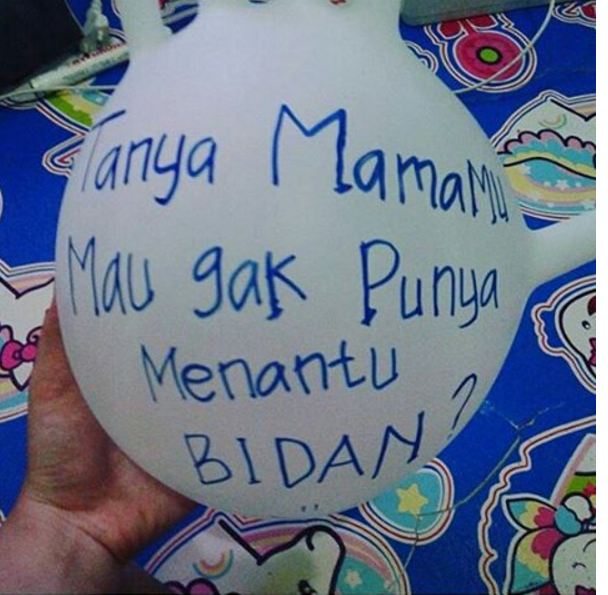 Tanya MamaMu
Mau gak Punya
Menantu
BIDAN?